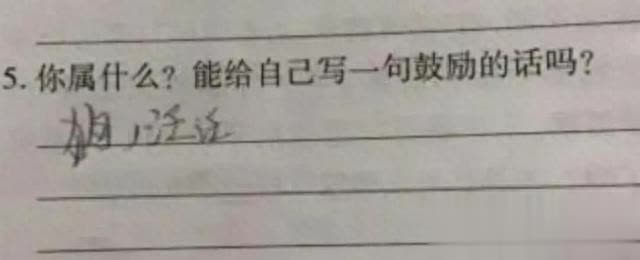 5. 你属什么？能给自己写一句鼓励的话吗？